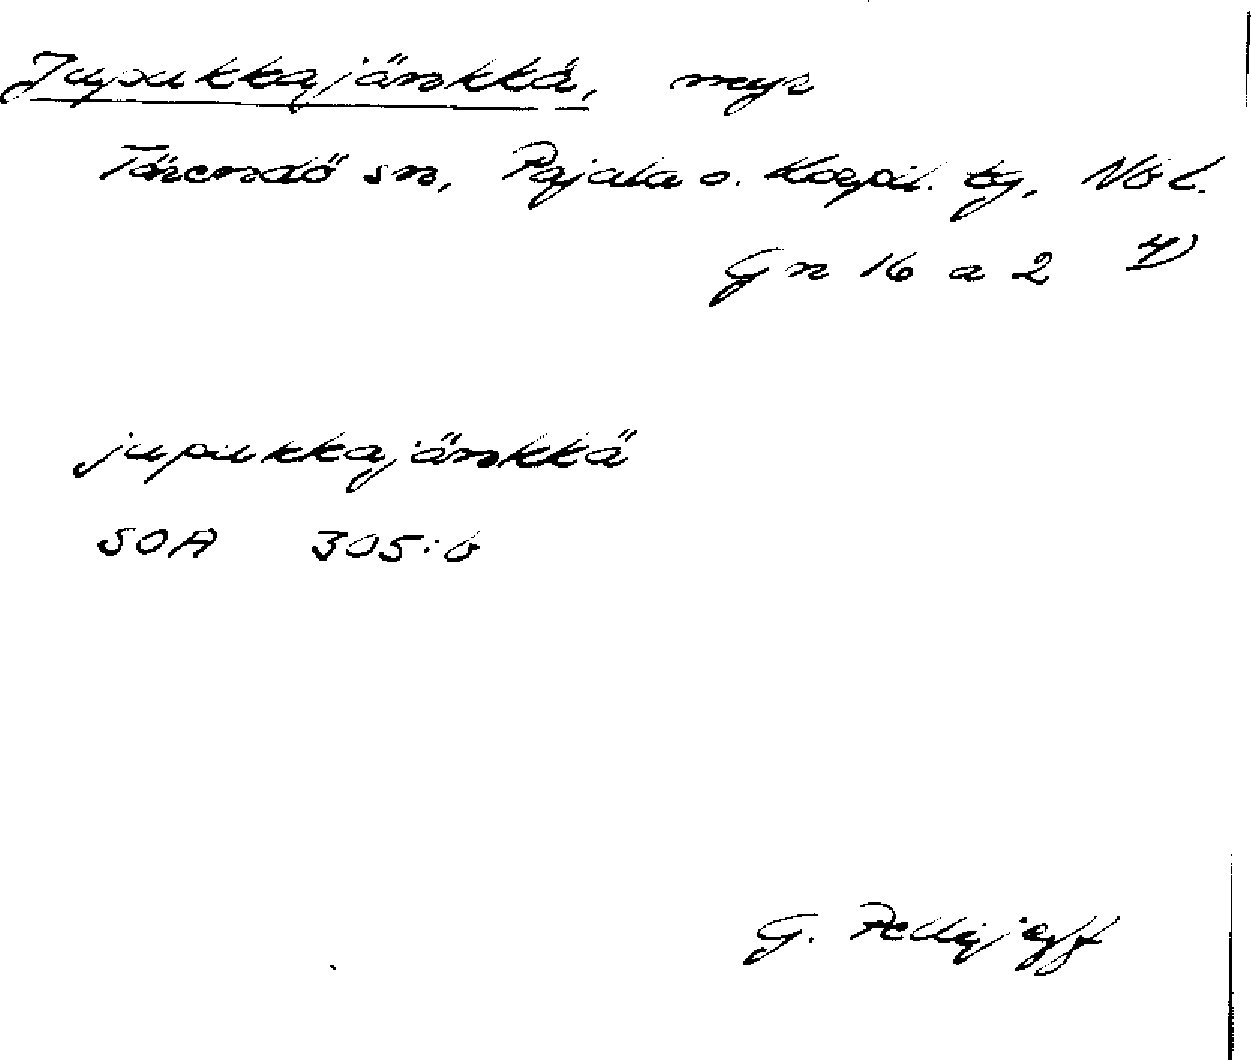 Jupukkajänkkä, myr
Tärendö sn, Pajala o. Korpil. tg, Nb l.
Gn 16 a 2 4)
jupukkajänkkä
SOA 305:6
G. Pellijeff